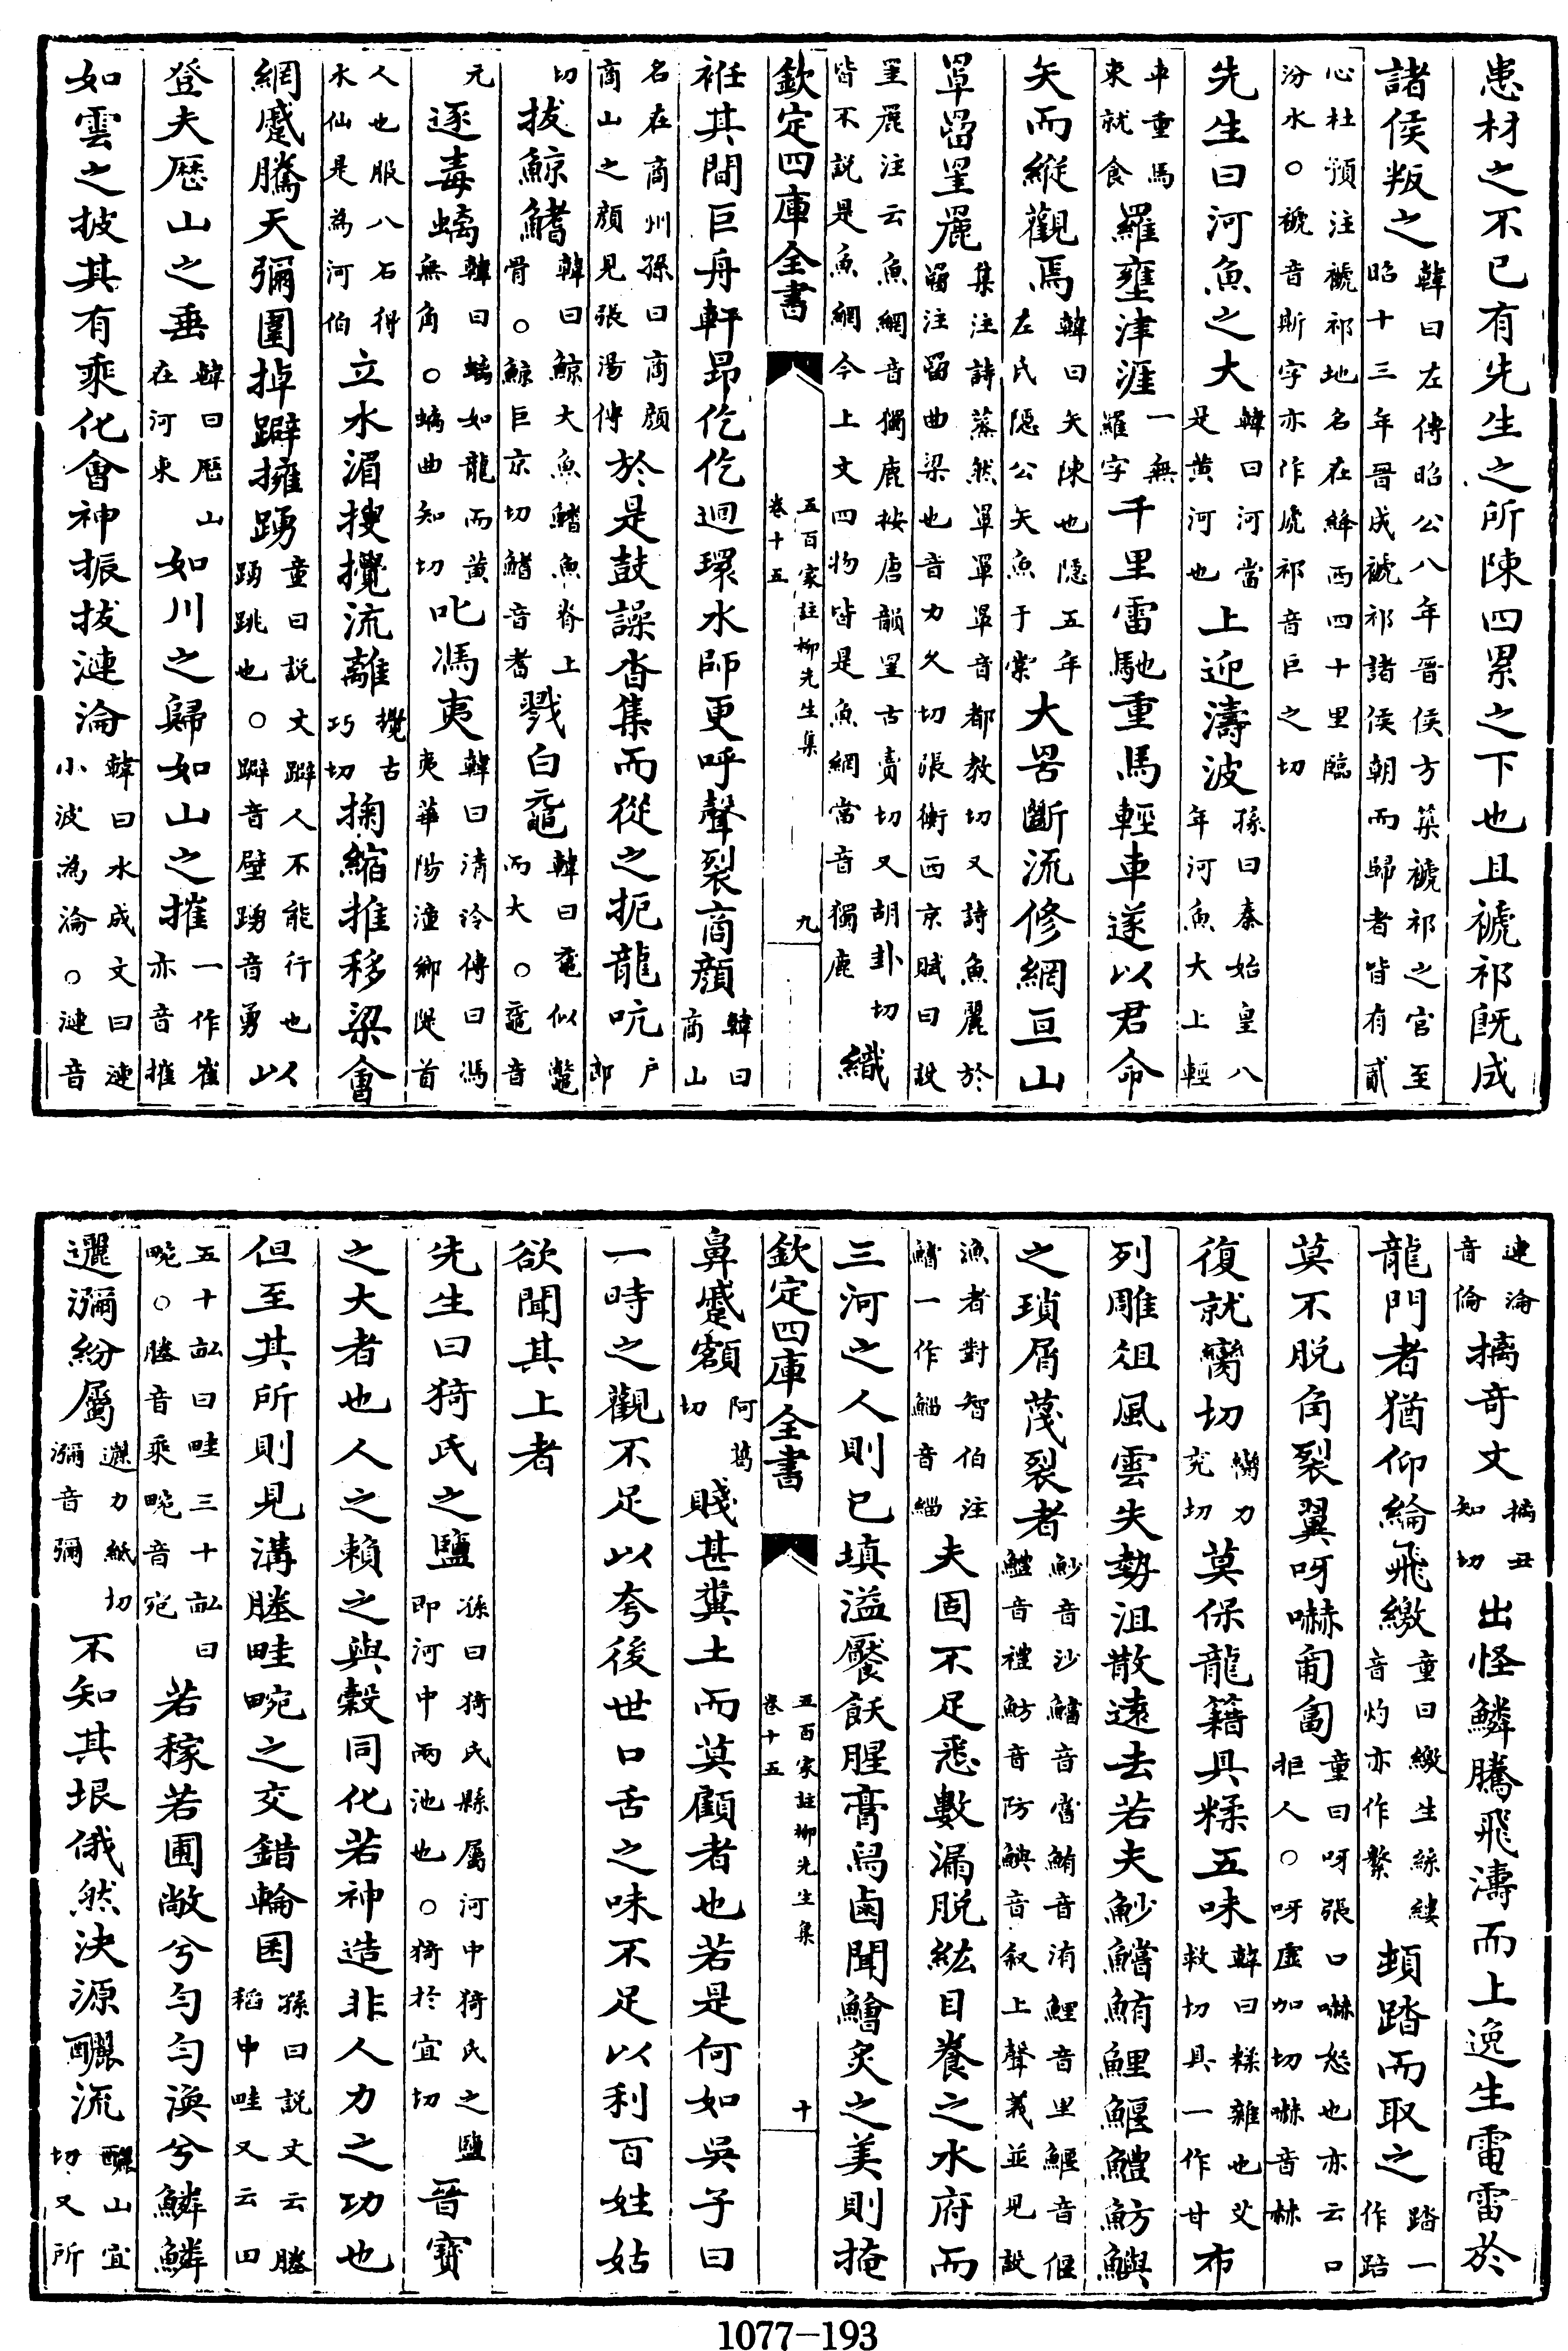 患材之不已有先生之所陳四累之下也且虒祁既成
諸侯叛之韓曰左傳昭公八年晉侯方築虒祁之宫至昭十三年晉成虒祁諸侯朝而歸者皆有貳
心杜預注虒祁地名在絳西四十里臨汾水○虒音斯字亦作虎祁音巨之切
先生曰河魚之大韓曰河當是黄河也上迎濤波孫曰秦始皇八年河魚大上輕
車重馬東就食羅壅津涯一無羅字千里雷馳重馬輕車遂以君命
矢而縱觀焉韓曰矢陳也隠五年左氏隠公矢魚于棠大罟斷流修網亘山
罩罶罣麗集注詩蒸然罩罩罩音都教切又詩魚麗於罶注罶曲梁也音力久切張衡西京賦曰設
罣麗注云魚網音獨鹿按唐韻罣古賣切又胡卦切皆不説是魚網今上文四物皆是魚網當音獨鹿織
欽定四庫全書
五百家註柳先生集
卷十五
九
袵其間巨舟軒昂仡仡迴環水師更呼聲裂商顔韓曰商山
名在商州孫曰商顔商山之顔見張湯傳於是鼓譟沓集而從之扼龍吭户郎
切拔鯨鰭韓曰鯨大魚鰭魚脊上骨○鯨巨京切鰭音耆戮白黿韓曰黿似鼈而大○黿音
元逐毒螭韓曰螭如龍而黄無角○螭曲知切叱馮夷韓曰清泠傳曰馮夷華陽潼鄉隄首
人也服八石得水仙是為河伯立水湄搜攪流離攪古巧切掬縮推移梁會
網蹙騰天彌圍掉躃擁踴童曰説文躃人不能行也以踴跳也○躃音壁踴音勇以
登夫歴山之垂韓曰歴山在河東如川之歸如山之摧一作崔亦音摧
如雲之披其有乘化會神振拔漣淪韓曰水成文曰漣小波為淪○漣音
連淪音倫摛奇文摛丑知切出怪鱗騰飛濤而上逸生電雷於
龍門者猶仰綸飛繳童曰繳生絲縷音灼亦作繁頫踏而取之踏一作踣
莫不脱角裂翼呀嚇匍匐童曰呀張口嚇怒也亦云口非人○呀虚加切嚇音赫
復就臠切臠力兖切莫保龍籍具糅五味韓曰糅雜也女救切具一作甘布
列雕俎風雲失勢沮散遠去若夫魦鱨鮪鯉鰋鱧魴鱮
之瑣屑蔑裂者魦音沙鱨音嘗鮪音洧鯉音里鰋音偃鱧音禮魴音防鱮音叙上聲義並見設
漁者對智伯注鱨一作鯔音緇夫固不足悉數漏脱紘目養之水府而
三河之人則已填溢饜飫腥膏舄鹵聞鱠炙之美則掩
欽定四庫全書
五百家註柳先生集
卷十五
十
鼻蹙頞阿葛切賤甚糞土而莫顧者也若是何如吳子曰
一時之觀不足以夸後世口舌之味不足以利百姓姑
欲聞其上者
先生曰猗氏之鹽孫曰猗氏縣屬河中猗氏之鹽即河中兩池也○猗於宜切晉寶
之大者也人之賴之與穀同化若神造非人力之功也
但至其所則見溝塍畦畹之交錯輪囷孫曰説文云塍稻中畦又云田
五十畝曰畦三十畝曰畹○塍音乘畹音宛若稼若圃敞兮匀匀渙兮鱗鱗
邐瀰紛屬邐力紙切瀰音彌不知其垠俄然決源釃流釃山宜切又所
1077-193